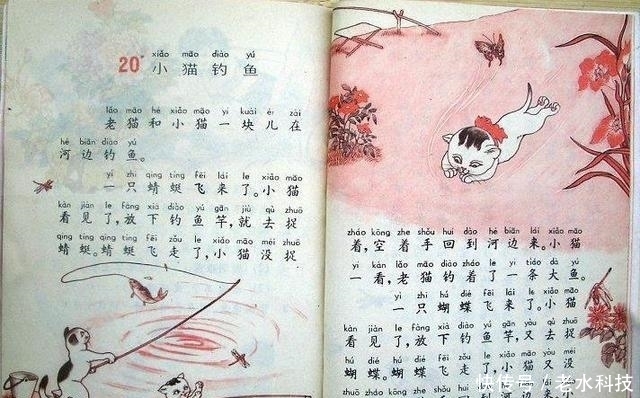 xiǎo māo diào yú
20 小猫钓鱼
lǎo māo hé xiǎo māo yí kuài ér zài
老猫和小猫一块儿在
hé biān diào yú
河边钓鱼。
yì zhī qīng tíng fēi lái le xiǎo māo
一只蜻蜓飞来了。小猫
kàn jiàn le fàng xià diào yú gān jiù qù zhuō
看见了,放下钓鱼竿,就去捉
qīng tíng qīng tíng fēi zǒu le xiǎo māo méi zhuō
蜻蜓。蜻蜓飞走了,小猫没捉
zháo kōng zhe shǒu huí dào hé biān lái xiǎo māo
着,空着手回到河边来。小猫
yí kàn lǎo māo diào zháo le yì tiáo dà yú
一看,老猫钓着了一条大鱼。
yì zhī hú dié fēi lái le xiǎo māo
一只蝴蝶飞来了。小猫
kàn jiàn le fàng xià diào yú gān yòu qù zhuō
看见了,放下钓鱼竿,又去捉
hú dié hú dié fēi zǒu le xiǎo māo yòu méi
蝴蝶。蝴蝶飞走了,小猫又没
快传号/老水科技